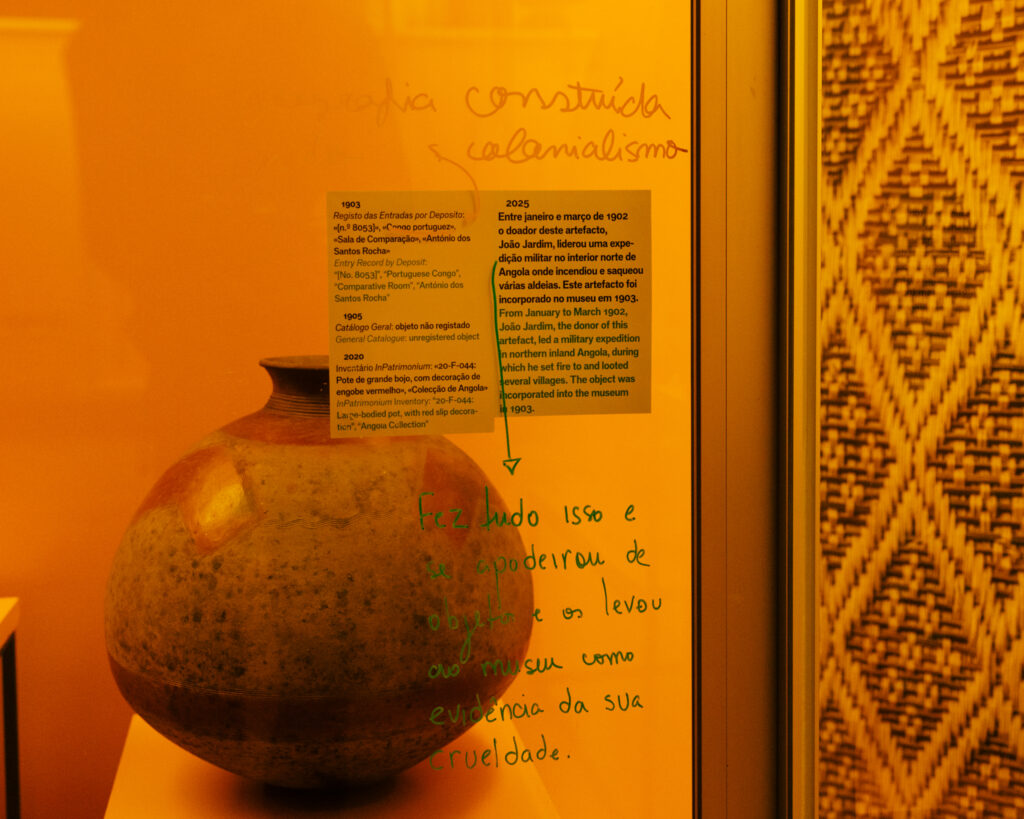 construída
colonialismo
1903
Registo das Entradas por Deposito:
«[n.º 8053]», «Congo portuguez»,
«Sala de Comparação», «António dos
Santos Rocha»
Entry Record by Deposit:
“[No. 8053]”, “Portuguese Congo”,
“Comparative Room”, “António dos
Santos Rocha”
1905
Catálogo Geral: objeto não registado
General Catalogue: unregistered object
2020
Inventário InPatrimonium: «20-F-044:
Pote de grande bojo, com decoração de
engobe vermelho», «Colecção de Angola»
InPatrimonium Inventory: “20-F-044:
Large-bodied pot, with red slip decora-
tion”, “Angola Collection”
2025
Entre janeiro e março de 1902
o doador deste artefacto,
João Jardim, liderou uma expe-
dição militar no interior norte de
Angola onde incendiou e saqueou
várias aldeias. Este artefacto foi
incorporado no museu em 1903.
From January to March 1902,
João Jardim, the donor of this
artefact, led a military expedition
in northern inland Angola, during
which he set fire to and looted
several villages. The object was
incorporated into the museum
in 1903.
Fez tudo isso e
se apodeirou de
objetos e os levou
ao museu como
evidência da sua
crueldade.